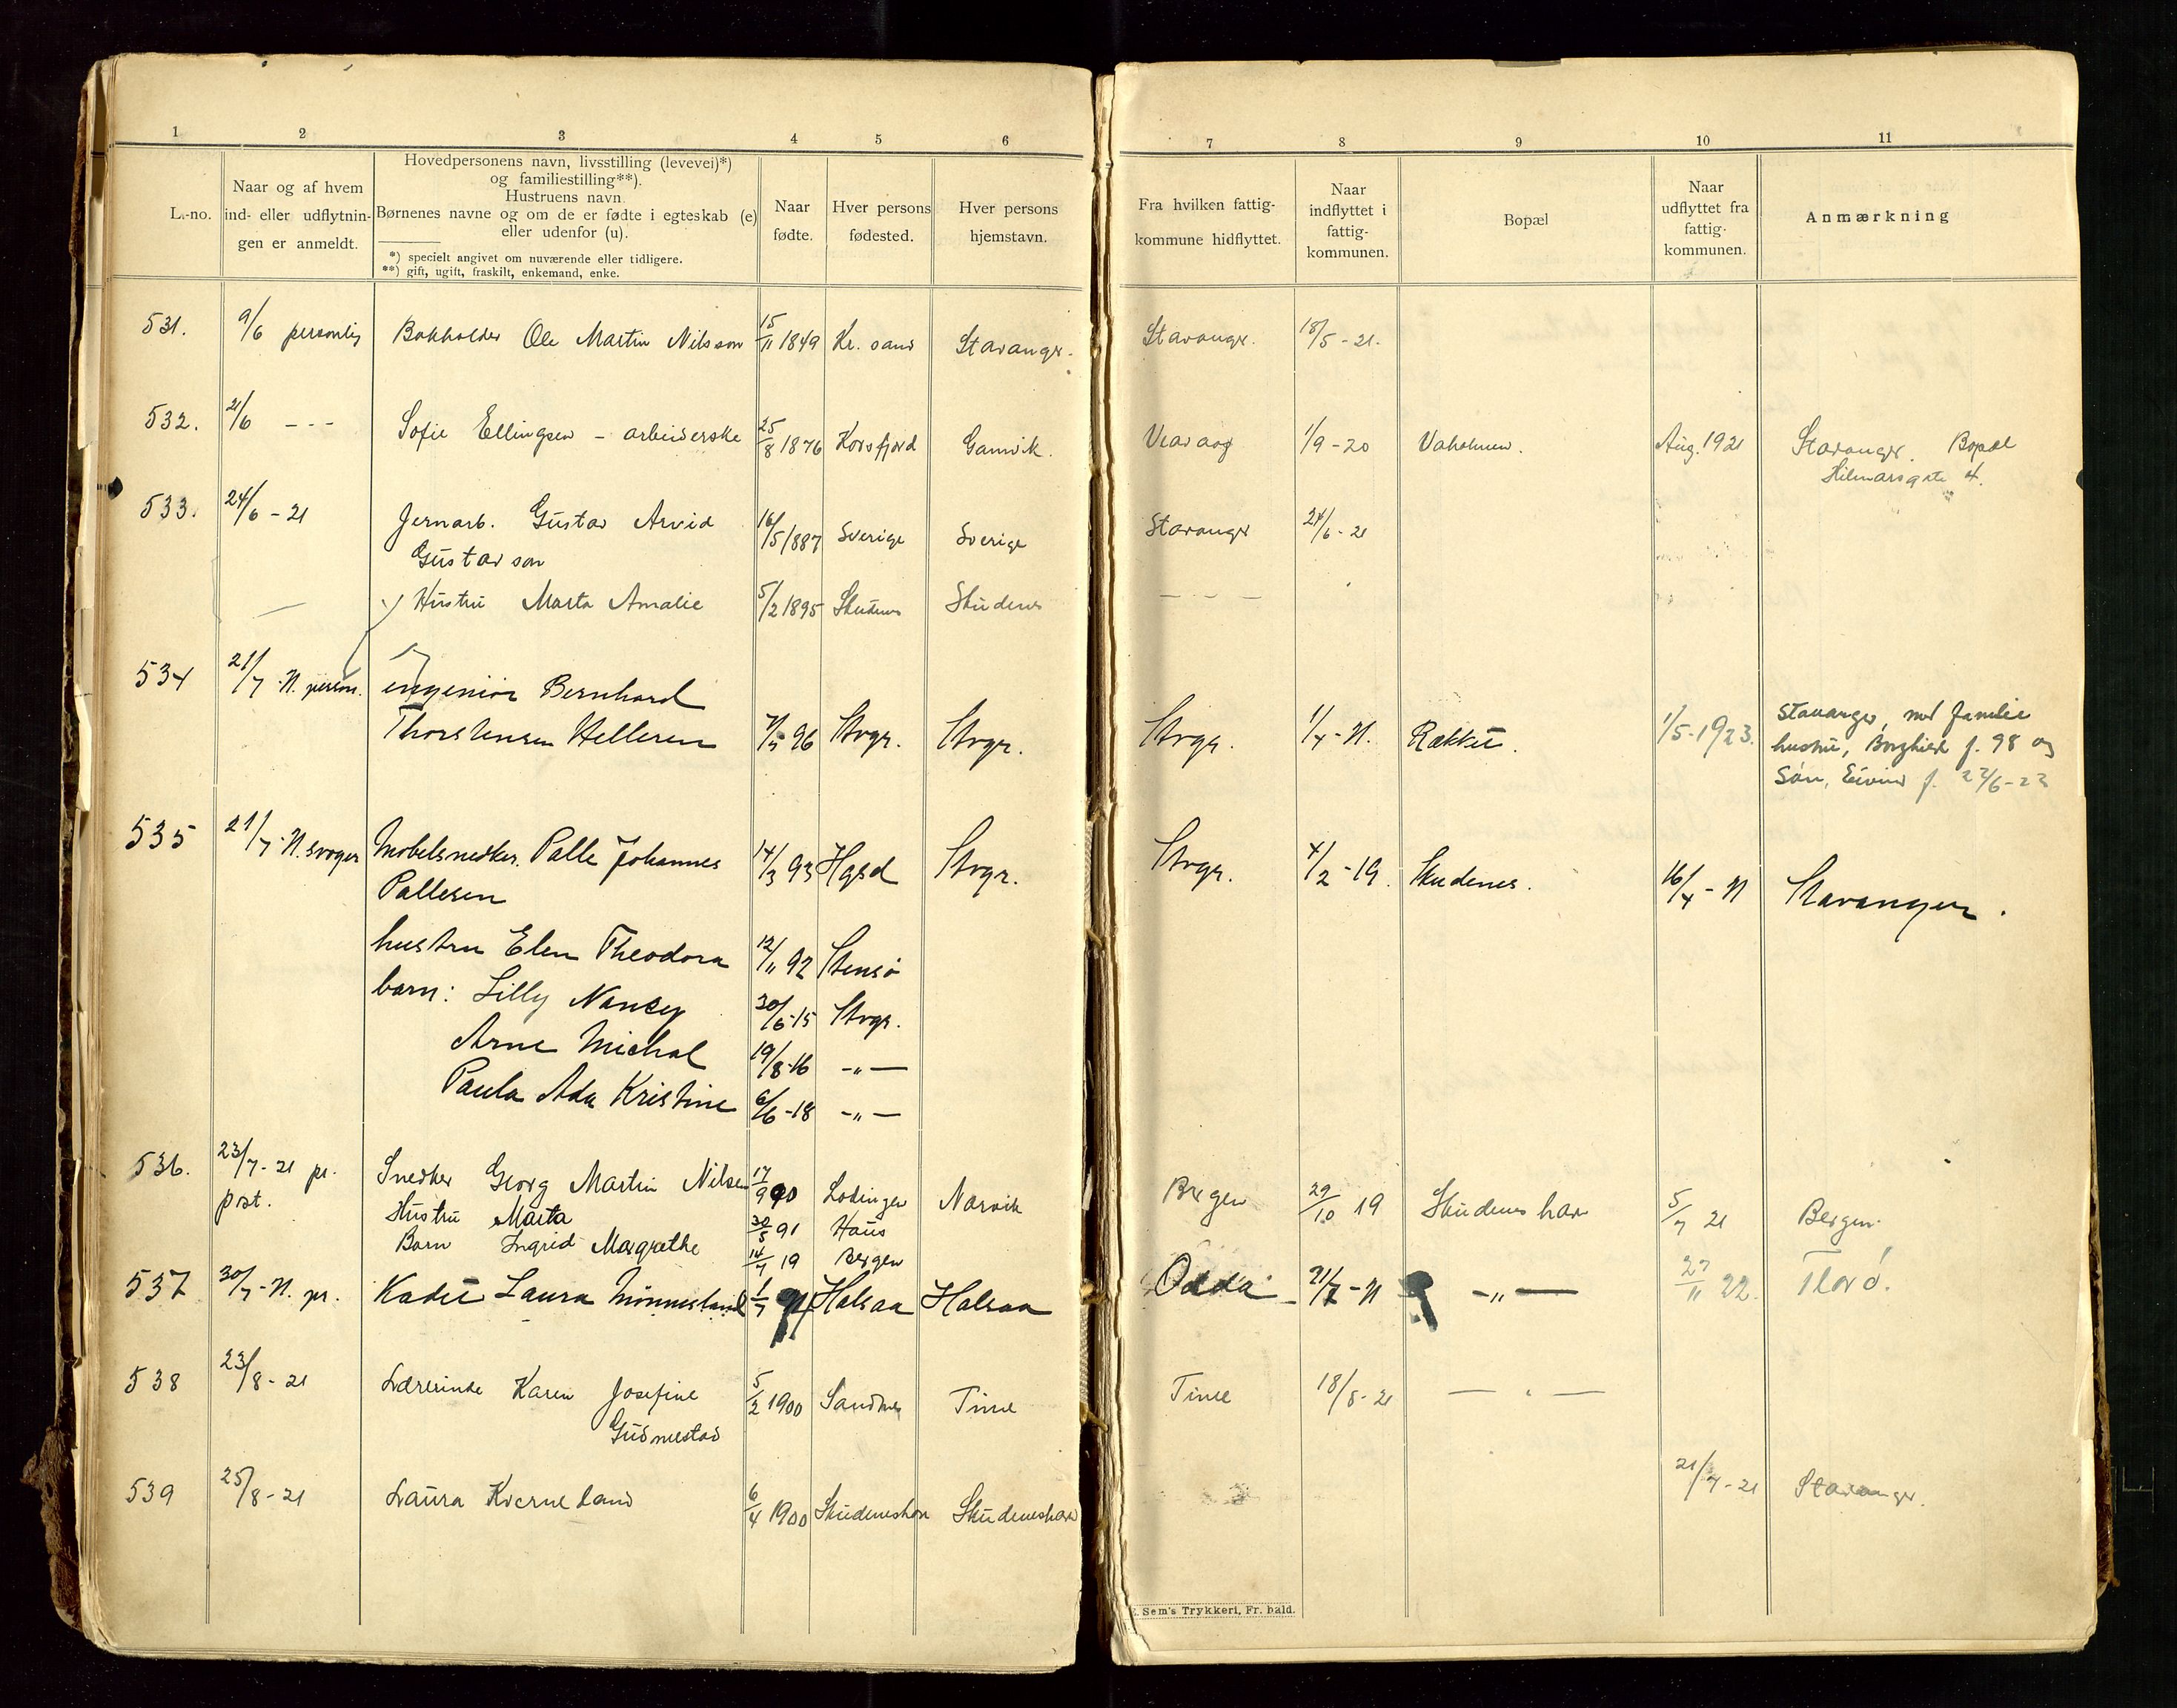 1 2 3 4 5 6 7 8 9 10 11
L.-no.
Naar og af hvem
ind- eller udflytnin-
gen er anmeldt.
Hovedpersonens navn, livsstilling (levevei)*)
og familiestilling**).
Hustruens navn.
Børnenes navne og om de er fødte i egteskab (e)
eller udenfor (u).
*) specielt angivet om nuværende eller tidligere.
**) gift, ugift, fraskilt, enkemand, enke.
Naar
fødte.
Hver persons
fødested.
Hver persons
hjemstavn.
Fra hvilken fattig-
kommune hidflyttet.
Naar
indflyttet i
fattig-
kommunen.
Bopæl
Naar
udflyttet fra
fattig-
kommunen.
Anmærkning
531. 9/6 personlig Bokholder Ole Martin Nilsson 15/11 1849 Kr. sand Stavanger. Stavanger. 18/5 - 21.
532. 21/6 - - - Sofie Ellingsen - arbeiderske 25/8 1876 Korsfjord Gamvik. 1/9 - 20 Aug. 1921 Stavanger. Bopæl
Hilmarsgate 4.
533. 24/6 - 21 Jernarb. Gustav Arvid 16/5 1887 Sverige Sverige Stavanger 24/6 - 21
Gustavson
Hustru Marta Amalie 5/2 1895 Skudenes Skudenes - - -
534 21/7 - 21. person. ingeniør Bernhard
Thorstensen Helleren 96 Stvgr. Stvgr. Stvgr. 1/4 - 21. Røkke. 1/5 - 1923.
Stavanger, med familie
hustru, Borghild f. 98 og
Søn, Eivind f. 22/6 - 22
535 21/7 - 21. svoger Møbelsnedker. Palle Johannes 14/3 93 Hgsd Stvgr. Stvgr. 4/2 - 19. Skudenes. 16/4 - 21 Stavanger.
Pallesen
hustru Elen Theodora 12/11 92 Stensø
barn: Lilly Nancy 30/6 - 15 Stvgr.
Arne Michal 19/8 - 16 - „ -
Paula Ada Kristine 6/6 - 18 - „ -
536. 23/7 - 21 pr. Snedker Georg Martin Nilsen 17/9 90 Lødingen Narvik Bergen 29/10 19 Skudeneshavn 5/7 21 Bergen.
post.
Hustru Marta 30/5 91 Haus
Barn Ingrid Margrethe 14/4 19 Bergen
537 30/7 - 21. pr. Kadet Laura 1/7 Halsaa Halsaa Odda 21/7 - 21 - „ - 27/11 22. Florø.
538 23/8 - 21 Lærerinde Karen Josefine 5/2 1900 Sandnes Time Time 18/8 - 21 - „ -
Gudmestad
539 25/8 - 21 Laura Kverneland 6/4 1900 Skudeneshavn Skudeneshavn 21/7 - 21 Stavanger.
E. Sem's Trykkeri, Fr. hald.